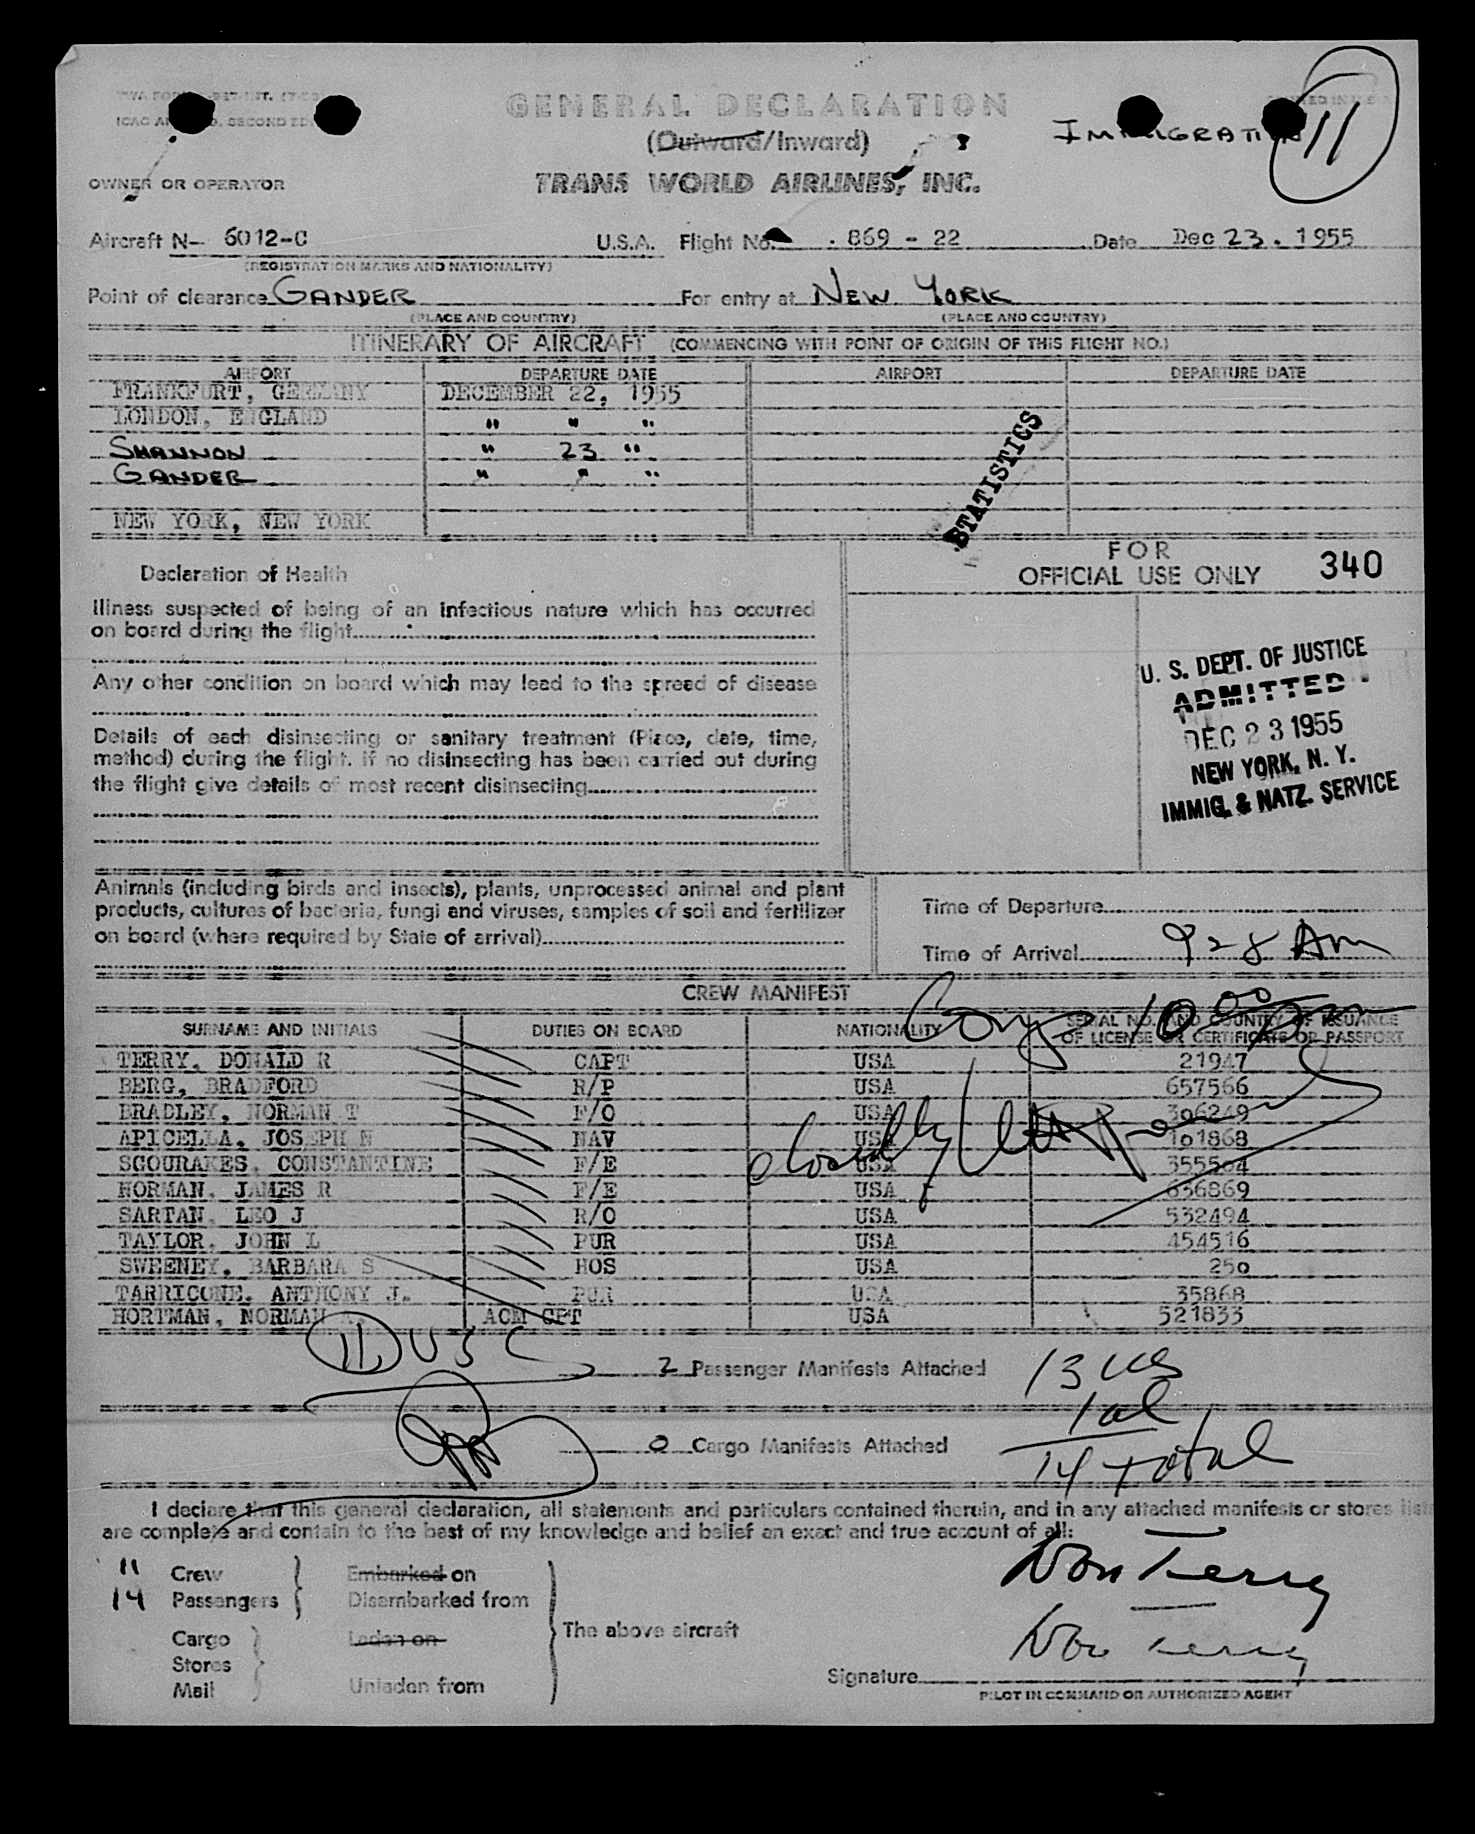 GENERAL DECLARATION
(Outward/Inward)
IMMIGRATION 11
OWNER OR OPERATOR TRANS WORLD AIRLINES, INC.
Aircraft N- 6012-C U.S.A. Flight No. 869 - 22 Date Dec 23. 1955
(REGISTRATION MARKS AND NATIONALITY)
Point of clearance GANDER For entry at NEW YORK
(PLACE AND COUNTRY) (PLACE AND COUNTRY)
ITINERARY OF AIRCRAFT (COMMENCING WITH POINT OF ORIGIN OF THIS FLIGHT NO.)
AIRPORT DEPARTURE DATE AIRPORT DEPARTURE DATE
FRANKFURT, GERMANY DECEMBER 22, 1955
LONDON, ENGLAND " " "
SHANNON " 23 "
GANDER " " "
NEW YORK, NEW YORK
STATISTICS
FOR
OFFICIAL USE ONLY 340
Declaration of Health
Illness suspected of being of an infectious nature which has occurred
on board during the flight
Any other condition on board which may lead to the spread of disease
Details of each disinsecting or sanitary treatment (Place, date, time,
method) during the flight. If no disinsecting has been carried out during
the flight give details of most recent disinsecting
U. S. DEPT. OF JUSTICE
ADMITTED
DEC 23 1955
NEW YORK, N. Y.
IMMIG. & NATZ. SERVICE
Animals (including birds and insects), plants, unprocessed animal and plant
products, cultures of bacteria, fungi and viruses, samples of soil and fertilizer
on board (where required by State of arrival)
Time of Departure
Time of Arrival 928 AM
CREW MANIFEST
SURNAME AND INITIALS DUTIES ON BOARD NATIONALITY SERIAL NO. AND COUNTRY OF ISSUANCE
OF LICENSE OR CERTIFICATE OR PASSPORT
TERRY, DONALD R CAPT USA 21947
BERG, BRADFORD R/P USA 657566
BRADLEY, NORMAN T F/O USA 306249
APICELLA, JOSEPH N NAV USA 101868
SCOURAKES, CONSTANTINE F/E USA 355504
NORMAN, JAMES R F/E USA 636869
SARTAN, LEO J R/O USA 532494
TAYLOR, JOHN L PUR USA 454516
SWEENEY, BARBARA S HOS USA 250
TARRICONE, ANTHONY J. PUR USA 35868
HORTMAN, NORMAN ACM CPT USA 521833
11 USC
2 Passenger Manifests Attached
13 USC
1 al
14 total
0 Cargo Manifests Attached
I declare that this general declaration, all statements and particulars contained therein, and in any attached manifests or stores list
are complete and contain to the best of my knowledge and belief an exact and true account of all:
11 Crew Embarked on
14 Passengers Disembarked from
The above aircraft
Cargo Laden on
Stores
Mail Unladen from
Don Terry
Don Terry
Signature
PILOT IN COMMAND OR AUTHORIZED AGENT